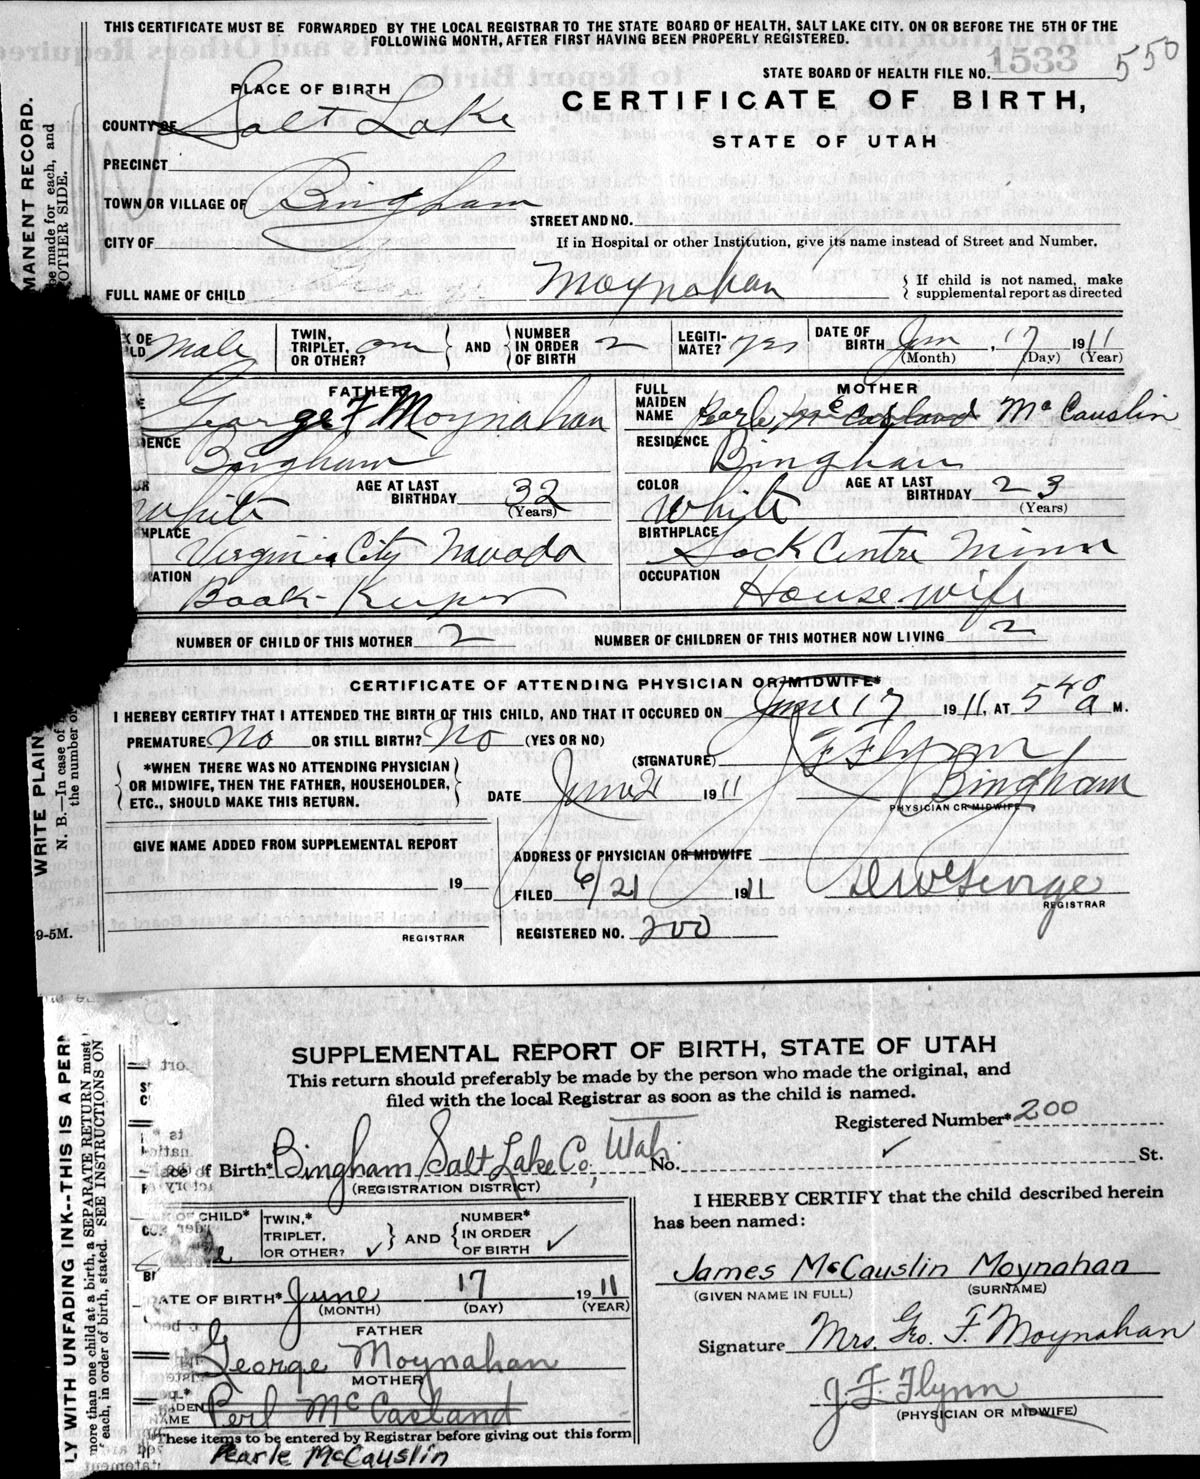 THIS CERTIFICATE MUST BE FORWARDED BY THE LOCAL REGISTRAR TO THE STATE BOARD OF HEALTH, SALT LAKE CITY. ON OR BEFORE THE 5TH OF THE
FOLLOWING MONTH, AFTER FIRST HAVING BEEN PROPERLY REGISTERED.
STATE BOARD OF HEALTH FILE NO. 1533 550
PLACE OF BIRTH
CERTIFICATE OF BIRTH,
STATE OF UTAH
COUNTY OF Salt Lake
PRECINCT
TOWN OR VILLAGE OF Bingham
STREET AND NO.
CITY OF
If in Hospital or other Institution, give its name instead of Street and Number.
FULL NAME OF CHILD Moynahan
If child is not named, make
supplemental report as directed
X OF
LD Male
TWIN, TRIPLET, OR OTHER? one AND NUMBER IN ORDER OF BIRTH 2
LEGITIMATE? yes
DATE OF BIRTH Jun, 17 1911
(Month) (Day) (Year)
FATHER
George F Moynahan
MOTHER
FULL MAIDEN NAME Pearle McCasland McCauslin
DENCE Bingham
RESIDENCE Bingham
OR White AGE AT LAST BIRTHDAY 32 (Years)
COLOR White AGE AT LAST BIRTHDAY 23 (Years)
HPLACE Virginia City Navada
BIRTHPLACE Sock Centre Minn
ATION Book-Keeper
OCCUPATION House-wife
NUMBER OF CHILD OF THIS MOTHER 2 NUMBER OF CHILDREN OF THIS MOTHER NOW LIVING 2
CERTIFICATE OF ATTENDING PHYSICIAN OR MIDWIFE*
I HEREBY CERTIFY THAT I ATTENDED THE BIRTH OF THIS CHILD, AND THAT IT OCCURED ON June 17 1911, AT 5 40 a M.
PREMATURE No OR STILL BIRTH? No (YES OR NO)
(SIGNATURE) J F Flynn
*WHEN THERE WAS NO ATTENDING PHYSICIAN
OR MIDWIFE, THEN THE FATHER, HOUSEHOLDER,
ETC., SHOULD MAKE THIS RETURN.
DATE June 21 1911
Bingham
PHYSICIAN OR MIDWIFE
GIVE NAME ADDED FROM SUPPLEMENTAL REPORT
ADDRESS OF PHYSICIAN OR MIDWIFE
19
FILED 6/21 1911
REGISTRAR
REGISTRAR
REGISTERED NO. 200
MANENT RECORD.
be made for each, and
OTHER SIDE.
WRITE PLAIN
N. B.—In case of
the number o
9-5M.
SUPPLEMENTAL REPORT OF BIRTH, STATE OF UTAH
This return should preferably be made by the person who made the original, and
filed with the local Registrar as soon as the child is named.
Registered Number* 200
of Birth* Bingham, Salt Lake Co, Utah. No. St.
(REGISTRATION DISTRICT)
I HEREBY CERTIFY that the child described herein
has been named:
OF CHILD*
TWIN,* TRIPLET, OR OTHER? ✓ AND NUMBER* IN ORDER OF BIRTH ✓
James McCauslin Moynahan
(GIVEN NAME IN FULL) (SURNAME)
ATE OF BIRTH* June 17 1911
(MONTH) (DAY) (YEAR)
Signature Mrs. Geo. F. Moynahan
FATHER
George Moynahan
MOTHER
J. F. Flynn
(PHYSICIAN OR MIDWIFE)
IDEN NAME Perl McCasland
These items to be entered by Registrar before giving out this form
Pearle McCauslin
LY WITH UNFADING INK--THIS IS A PERM
more than one child at a birth, a SEPARATE RETURN must
each, in order of birth, stated. SEE INSTRUCTIONS ON